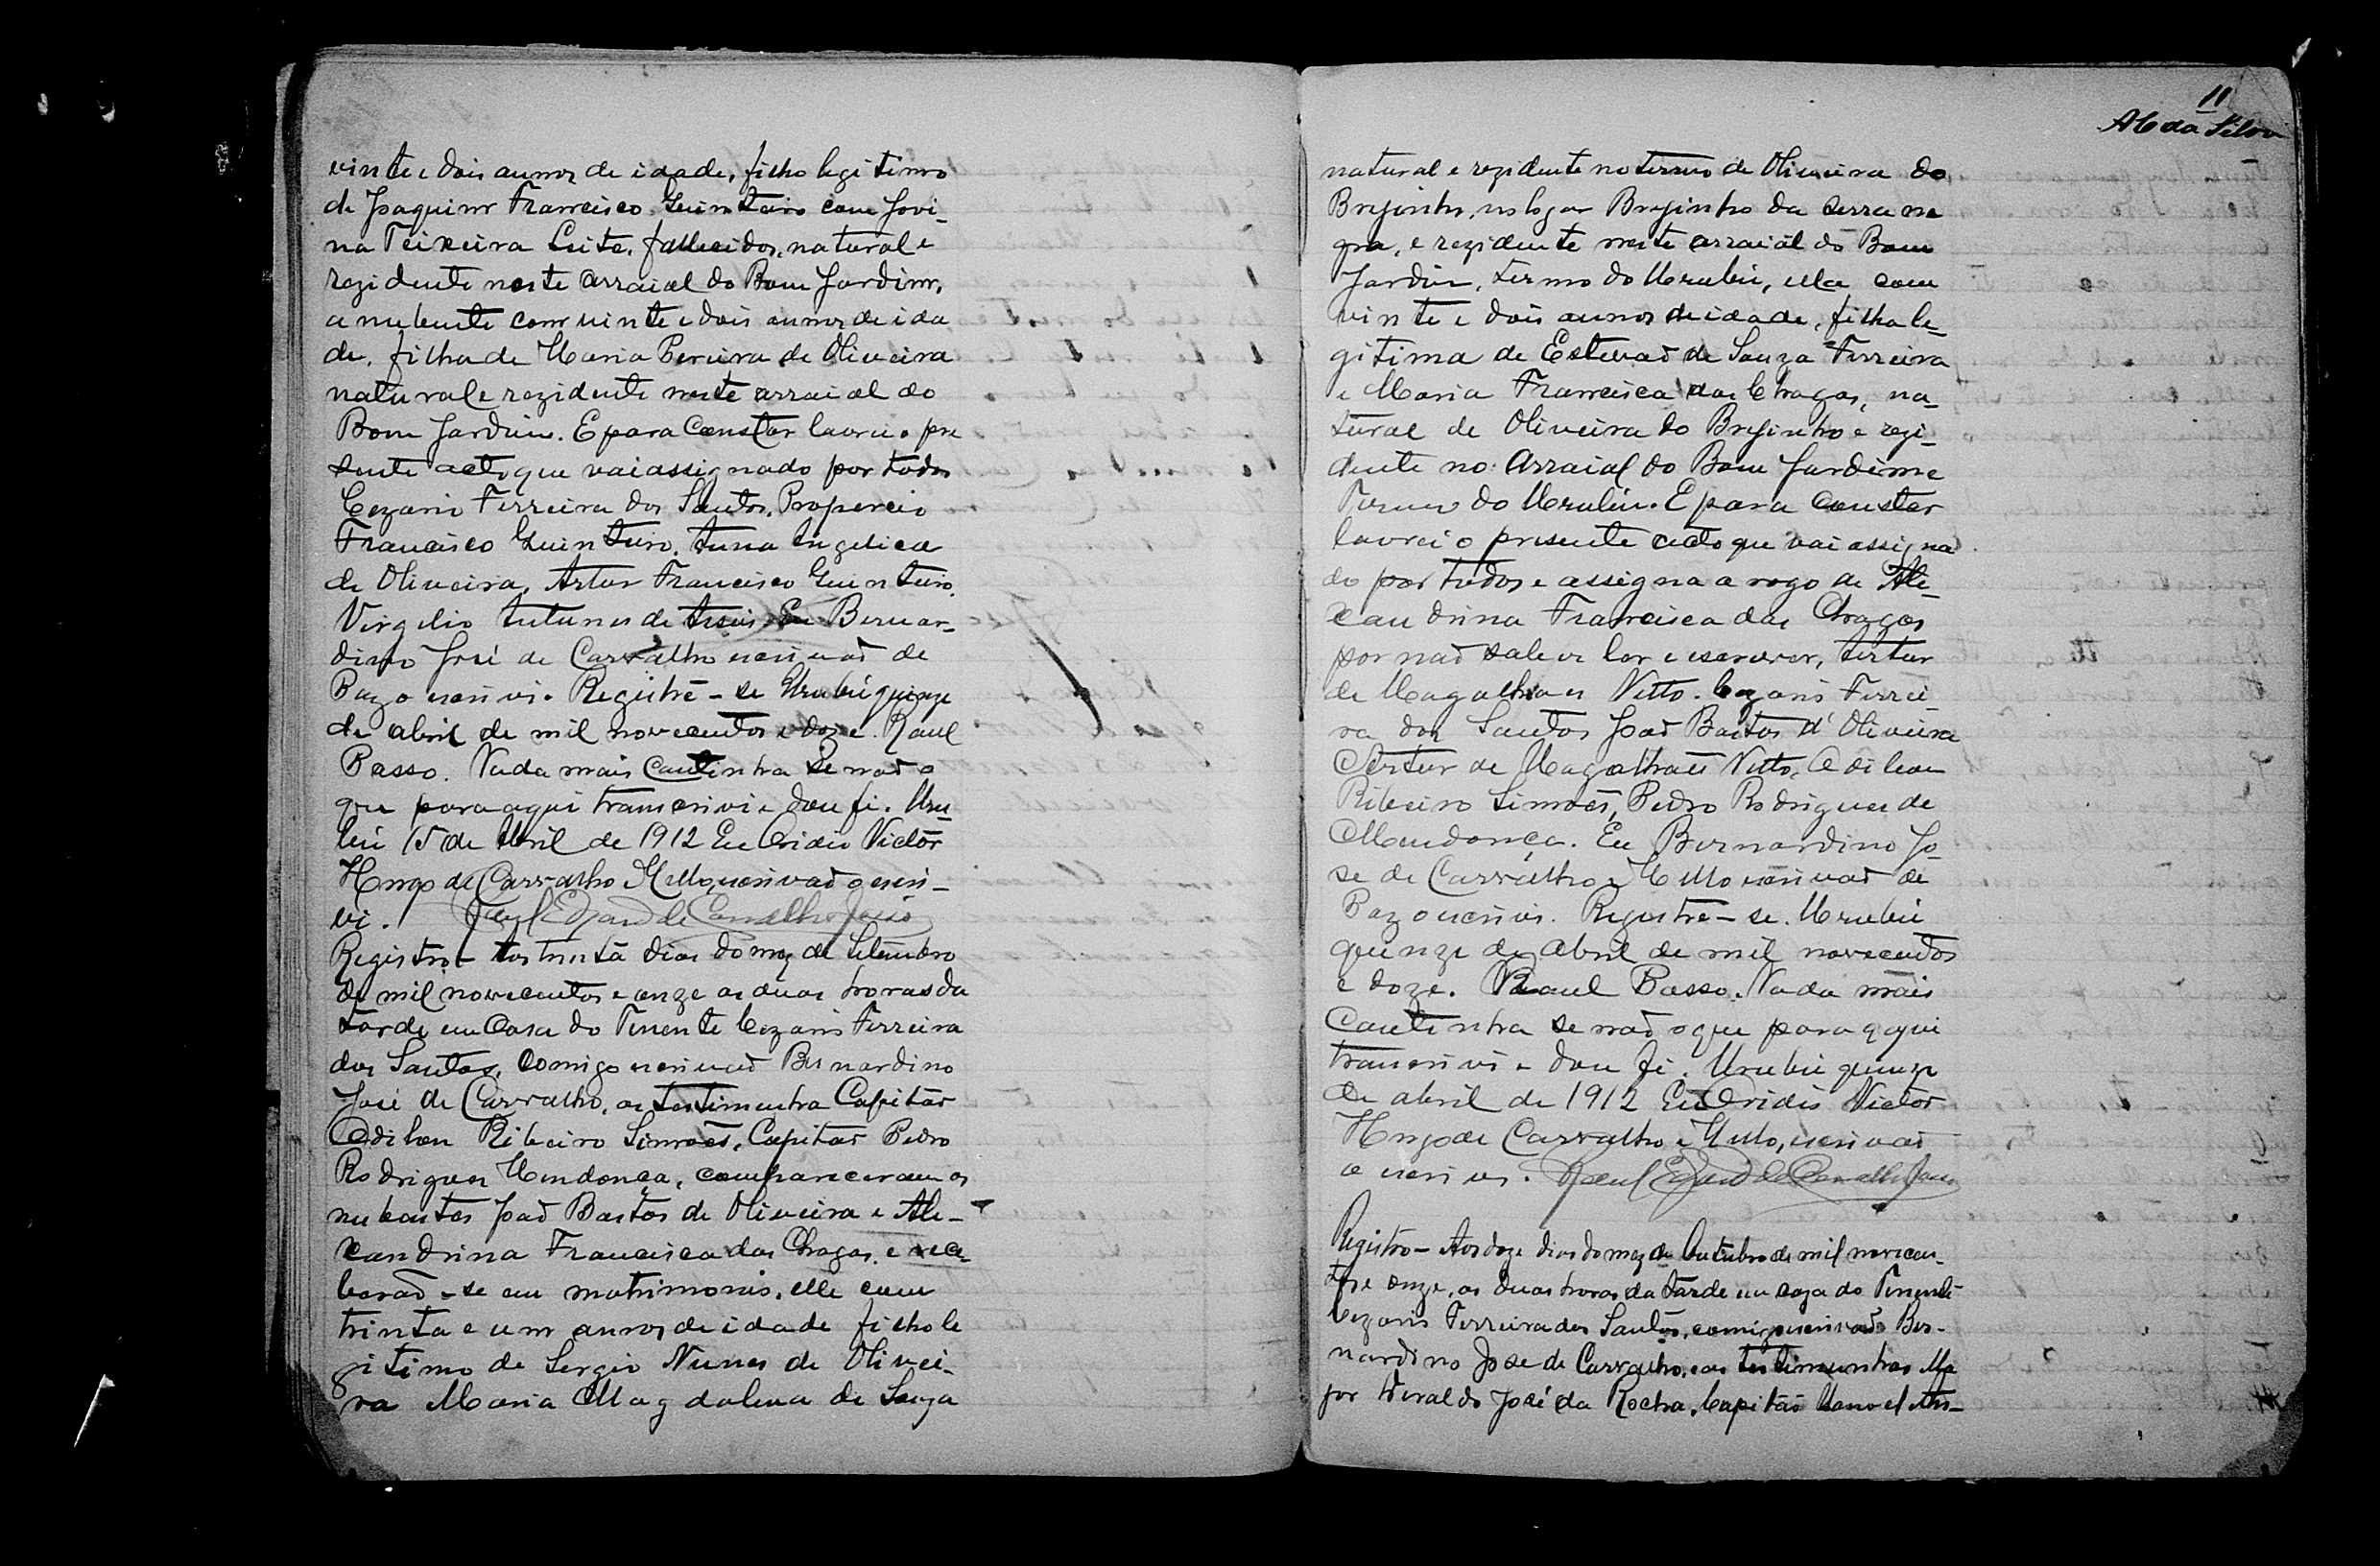 vinte e dois annos de idade, filho legitimo
de Joaquim Francisco Quinteiro com Jovi-
na Teixeira Leite, fallecidos, natural e
rezidente neste arraial do Bom Jardim,
a nubente com vinte e dois annos de ida
de, filha de Maria Pereira de Oliveira
natural e rezidente neste arraial do
Bom Jardim. E para constar lavrei o pre
sente acto que vai assignado por todos
Cezario Ferreira dos Santos, Propercio
Francisco Quinteiro, Anna Angelica
de Oliveira, Artur Francisco Quinteiro,
Virgilio Antunes de Assis. Eu Bernar-
dino José de Carvalho escrivaõ de
Pazo escrivi. Registre-se Urubú quinze
de abril de mil novecentos e doze. Raul
Passo. Nada mais continha se naõ o
que para aqui transcrivi e dou fé. Uru-
bú 15 de Abril de 1912 Eu Ovidio Victor
Hugo de Carvalho e Mello, escrivaõ o escri-
vi.
Registro - Aos trinta dias do mez de Setembro
de mil novecentos e onze as duas horas da
tarde em Casa do Tenente Cezario Ferreira
dos Santos, comigo escrivaõ Bernardino
José de Carvalho, as testimunha Capitaõ
Odilon Ribeiro Simoẽs, Capitaõ Pedro
Rodrigues Mendonça, compareceram os
nubentes Joaõ Bastos de Oliveira e Ale-
xandrina Francisca das Chagas, e rece-
beraõ-se em matrimonio, elle com
trinta e um annos de idade filho le
gitimo de Sergio Nunes de Olivei-
ra Maria Magdalena de Souza
11
A C da Silva
natural e rezidente no termo de Oliveira do
Brejinho, no logar Brejinho da serra ne
gra, e rezidente neste arraial do Bom
Jardim, termo do Urubú, ella com
vinte e dois annos de idade, filha le-
gitima de Estevaõ de Souza Ferreira
e Maria Francisca das Chagas, na-
tural de Oliveira do Brejinho e rezi-
dente no Arraial do Bom Jardim
Termo do Urubú. E para constar
lavrei o presente acto que vai assigna
do por todos e assigna a rogo de Ale-
xandrina Francisca das Chagas
por naõ saber ler e escrever, Artur
de Magalhaes Netto. Cezario Ferrei-
ra dos Santos Joaõ Bastos d'Oliveira
Artur de Magalhaẽs Netto, Odilon
Ribeiro Simoẽs, Pedro Rodrigues de
Mendonça. Eu Bernardino Jo-
se de Carvalho e Mello escrivaõ de
Pazo escrivi. Registre-se. Urubú
quinze de Abril de mil novecentos
e doze. Raul Passo. Nada mais
Continha se naõ o que para aqui
transcrivi e dou fé. Urubú quinze
de abril de 1912 Eu Ovidio Victor
Hugo de Carvalho e Mello, escrivaõ
o escrivi.
Registro - Aos doze dias do mez de Outubro de mil novecen-
tos e onze, as duas horas da tarde em caza do Tenente
Cezario Ferreira dos Santos, comigo escrivaõ Ber-
nardino Jose de Carvalho, e as testimunhas Ma
jor José da Rocha, Capitão Manoel An-